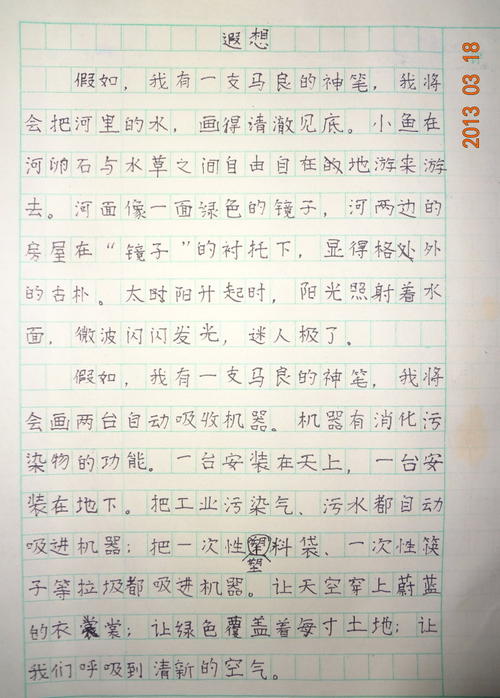 遐想
2013 03 18
假如，我有一支马良的神笔，我将
会把河里的水，画得清澈见底。小鱼在
河卵石与水草之间自由自在地游来游
去。河面像一面绿色的镜子，河两边的
房屋在“镜子”的衬托下，显得格外
的古朴。太时阳升起时，阳光照射着水
面，微波闪闪发光，迷人极了。
假如，我有一支马良的神笔，我将
会画两台自动吸收机器。机器有消化污
染物的功能。一台安装在天上，一台安
装在地下。把工业污染气、污水都自动
吸进机器；把一次性塑料袋、一次性筷
子等垃圾都吸进机器。让天空穿上蔚蓝
的衣裳；让绿色覆盖着每寸土地；让
我们呼吸到清新的空气。